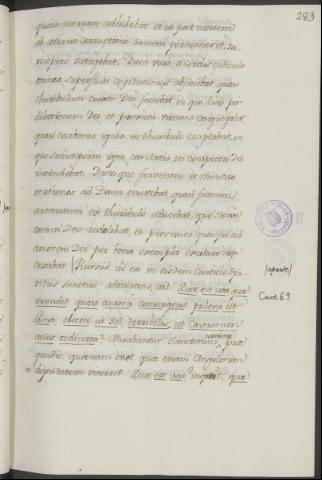 283
quasi myrram adhibebat, et ut post mortem
ab æterna corruptione carnem permaneret, su-
mopere satagebat. Dum vero a cordis cubiculo
omnes superfluas cogitationes abjiciebat, quasi
thuribulum coram Deo faciebat, in quo dum per
dilationem Dei et proximi virtutes congregabat
quasi carbones ignis in thuribulo coaptabat, in
quo seipsam igne caritatis in conspectu Dei
incendebat. Dumque ferventes et mundas
orationes ad Deum emittebat, quasi fumum
aromatum ex thuribulo educebat, quo suave
coram Deo redolebat, et proximos quosque ad
amorem Dei per bona exempla excitare non
cessabat. Rursus de ea in eisdem Canticis Spi-
ritus sanctus admirans, ait: Quæ est ista quæ
ascendit quasi aurora consurgens, pulcra ut
Luna, electa ut Sol, terribilis ut Castrorum
acies ordinata? Mirabantur Sanctorum præ
gaudio, quænam esset quæ etiam Angelorum
dignitatem vinceret. Quæ est ista, inquit, quæ
(aparte)
Cant. 6. 9.